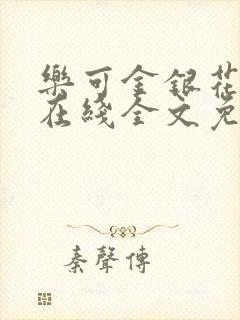 樂可金銀花
在綫全文免
秦聲傳